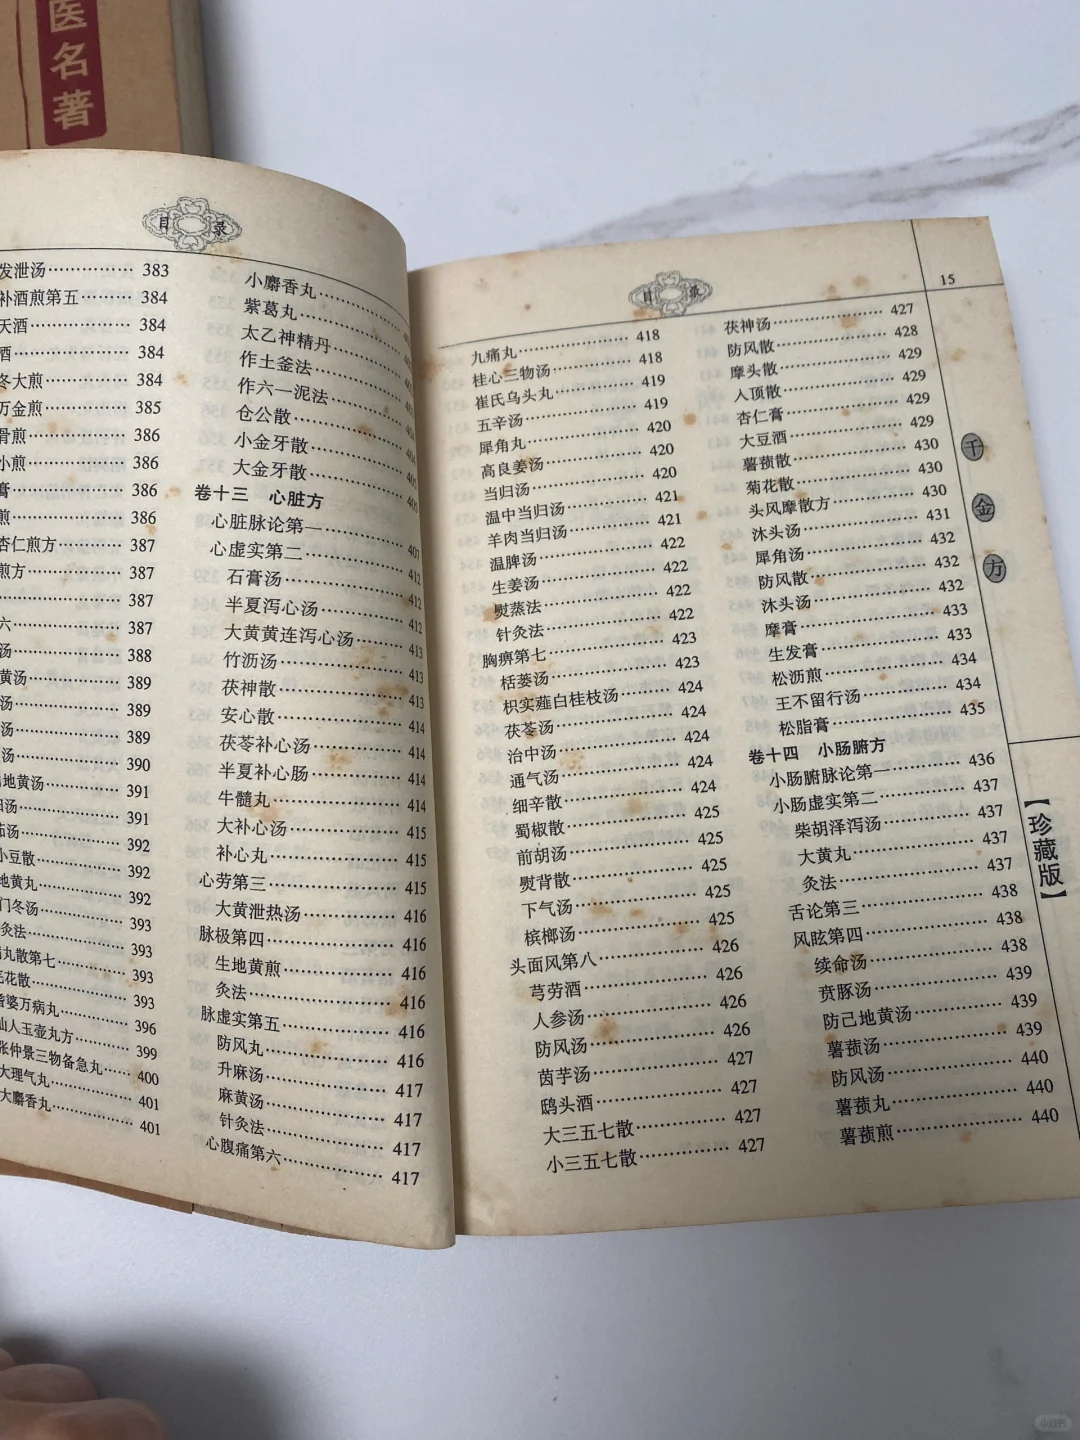 医名著
目录
发泄汤……………383
补酒煎第五………384
天酒………………384
酒…………………384
冬大煎……………384
万金煎……………385
骨煎………………386
小煎………………386
膏…………………386
煎…………………386
杏仁煎方…………387
煎方………………387
387
六…………………387
汤…………………388
黄汤………………389
汤…………………389
汤…………………389
汤…………………390
地黄汤……………391
汤…………………391
茄汤………………392
小豆散……………392
地黄丸……………392
门冬汤……………393
灸法………………393
丸散第七…………393
芫花散……………393
耆婆万病丸………396
仙人玉壶丸方……399
张仲景三物备急丸……400
大理气丸…………401
大麝香丸…………401
小麝香丸
紫葛丸
太乙神精丹
作土釜法
作六一泥法
仓公散
小金牙散
大金牙散
卷十三 心脏方
心脏脉论第一……407
心虚实第二………412
石膏汤……………412
半夏泻心汤………412
大黄黄连泻心汤……413
竹沥汤……………413
茯神散……………413
安心散……………414
茯苓补心汤………414
半夏补心肠………414
牛髓丸……………414
大补心汤…………415
补心丸……………415
心劳第三…………415
大黄泄热汤………416
脉极第四…………416
生地黄煎…………416
灸法………………416
脉虚实第五………416
防风丸……………416
升麻汤……………417
麻黄汤……………417
针灸法……………417
心腹痛第六………417
目录
15
九痛丸……………418
桂心三物汤………418
崔氏乌头丸………419
五辛汤……………419
犀角丸……………420
高良姜汤…………420
当归汤……………420
温中当归汤………421
羊肉当归汤………421
温脾汤……………422
生姜汤……………422
熨蒸法……………422
针灸法……………422
胸痹第七…………423
栝蒌汤……………423
枳实薤白桂枝汤……424
茯苓汤……………424
治中汤……………424
通气汤……………424
细辛散……………424
蜀椒散……………425
前胡汤……………425
熨背散……………425
下气汤……………425
槟榔汤……………425
头面风第八………426
芎劳酒……………426
人参汤……………426
防风汤……………426
茵芋汤……………427
鸱头酒……………427
大三五七散………427
小三五七散………427
茯神汤……………427
防风散……………428
摩头散……………429
人顶散……………429
杏仁膏……………429
大豆酒……………429
薯蓣散……………430
菊花散……………430
头风摩散方………430
沐头汤……………431
犀角汤……………432
防风散……………432
沐头汤……………432
摩膏………………433
生发膏……………433
松沥煎……………434
王不留行汤………434
松脂膏……………435
卷十四 小肠腑方
小肠腑脉论第一……436
小肠虚实第二……437
柴胡泽泻汤………437
大黄丸……………437
灸法………………437
舌论第三…………438
风眩第四…………438
续命汤……………438
贲豚汤……………439
防己地黄汤………439
薯蓣汤……………439
防风汤……………440
薯蓣丸……………440
薯蓣煎……………440
千金方
【珍藏版】
小红书